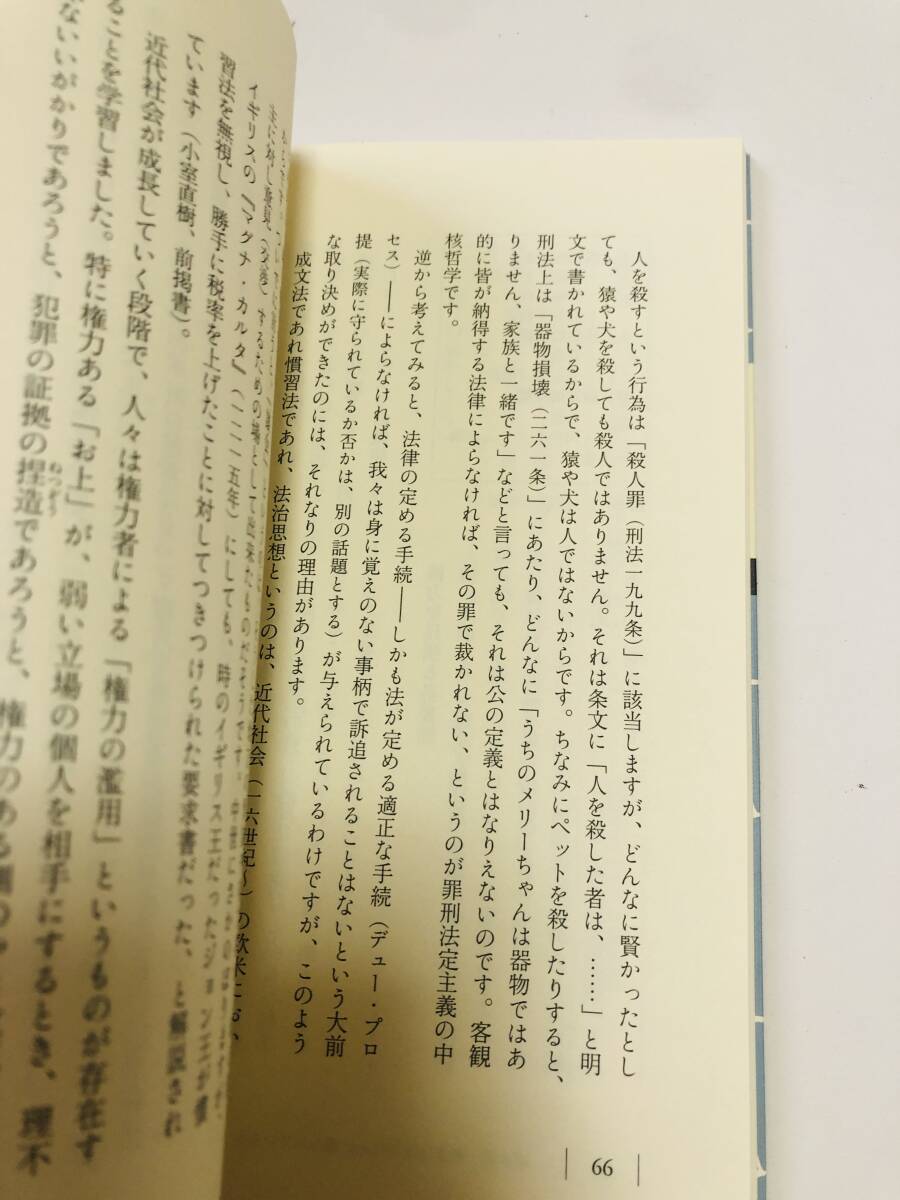 人を殺すという行為は「殺人罪（刑法一九九条）」に該当しますが、どんなに賢かったとし
ても、猿や犬を殺しても殺人ではありません。それは条文に「人を殺した者は、……」と明
文で書かれているからで、猿や犬は人ではないからです。ちなみにペットを殺したりすると、
刑法上は「器物損壊（二六一条）」にあたり、どんなに「うちのメリーちゃんは器物ではあ
りません、家族と一緒です」などと言っても、それは公の定義とはなりえないのです。客観
的に皆が納得する法律によらなければ、その罪で裁かれない、というのが罪刑法定主義の中
核哲学です。
逆から考えてみると、法律の定める手続――しかも法が定める適正な手続（デュー・プロ
セス）――によらなければ、我々は身に覚えのない事柄で訴追されることはないという大前
提（実際に守られているか否かは、別の話題とする）が与えられているわけですが、このよう
な取り決めができたのには、それなりの理由があります。
成文法であれ慣習法であれ、法治思想というのは、近代社会（一六世紀～）の欧米にお、
するための場として出来たものだそうです。
イギリスの『マグナ・カルタ』（一二一五年）にしても、時のイギリス王だったジョン王が慣
習法を無視し、勝手に税率を上げたことに対してつきつけられた要求書だった、と解説され
ています（小室直樹、前掲書）。
近代社会が成長していく段階で、人々は権力者による「権力の濫用」というものが存在す
ることを学習しました。特に権力ある「お上」が、弱い立場の個人を相手にするとき、理不
ないいがかりであろうと、犯罪の証拠の捏造であろうと、権力のある側の
ねつぞう
66